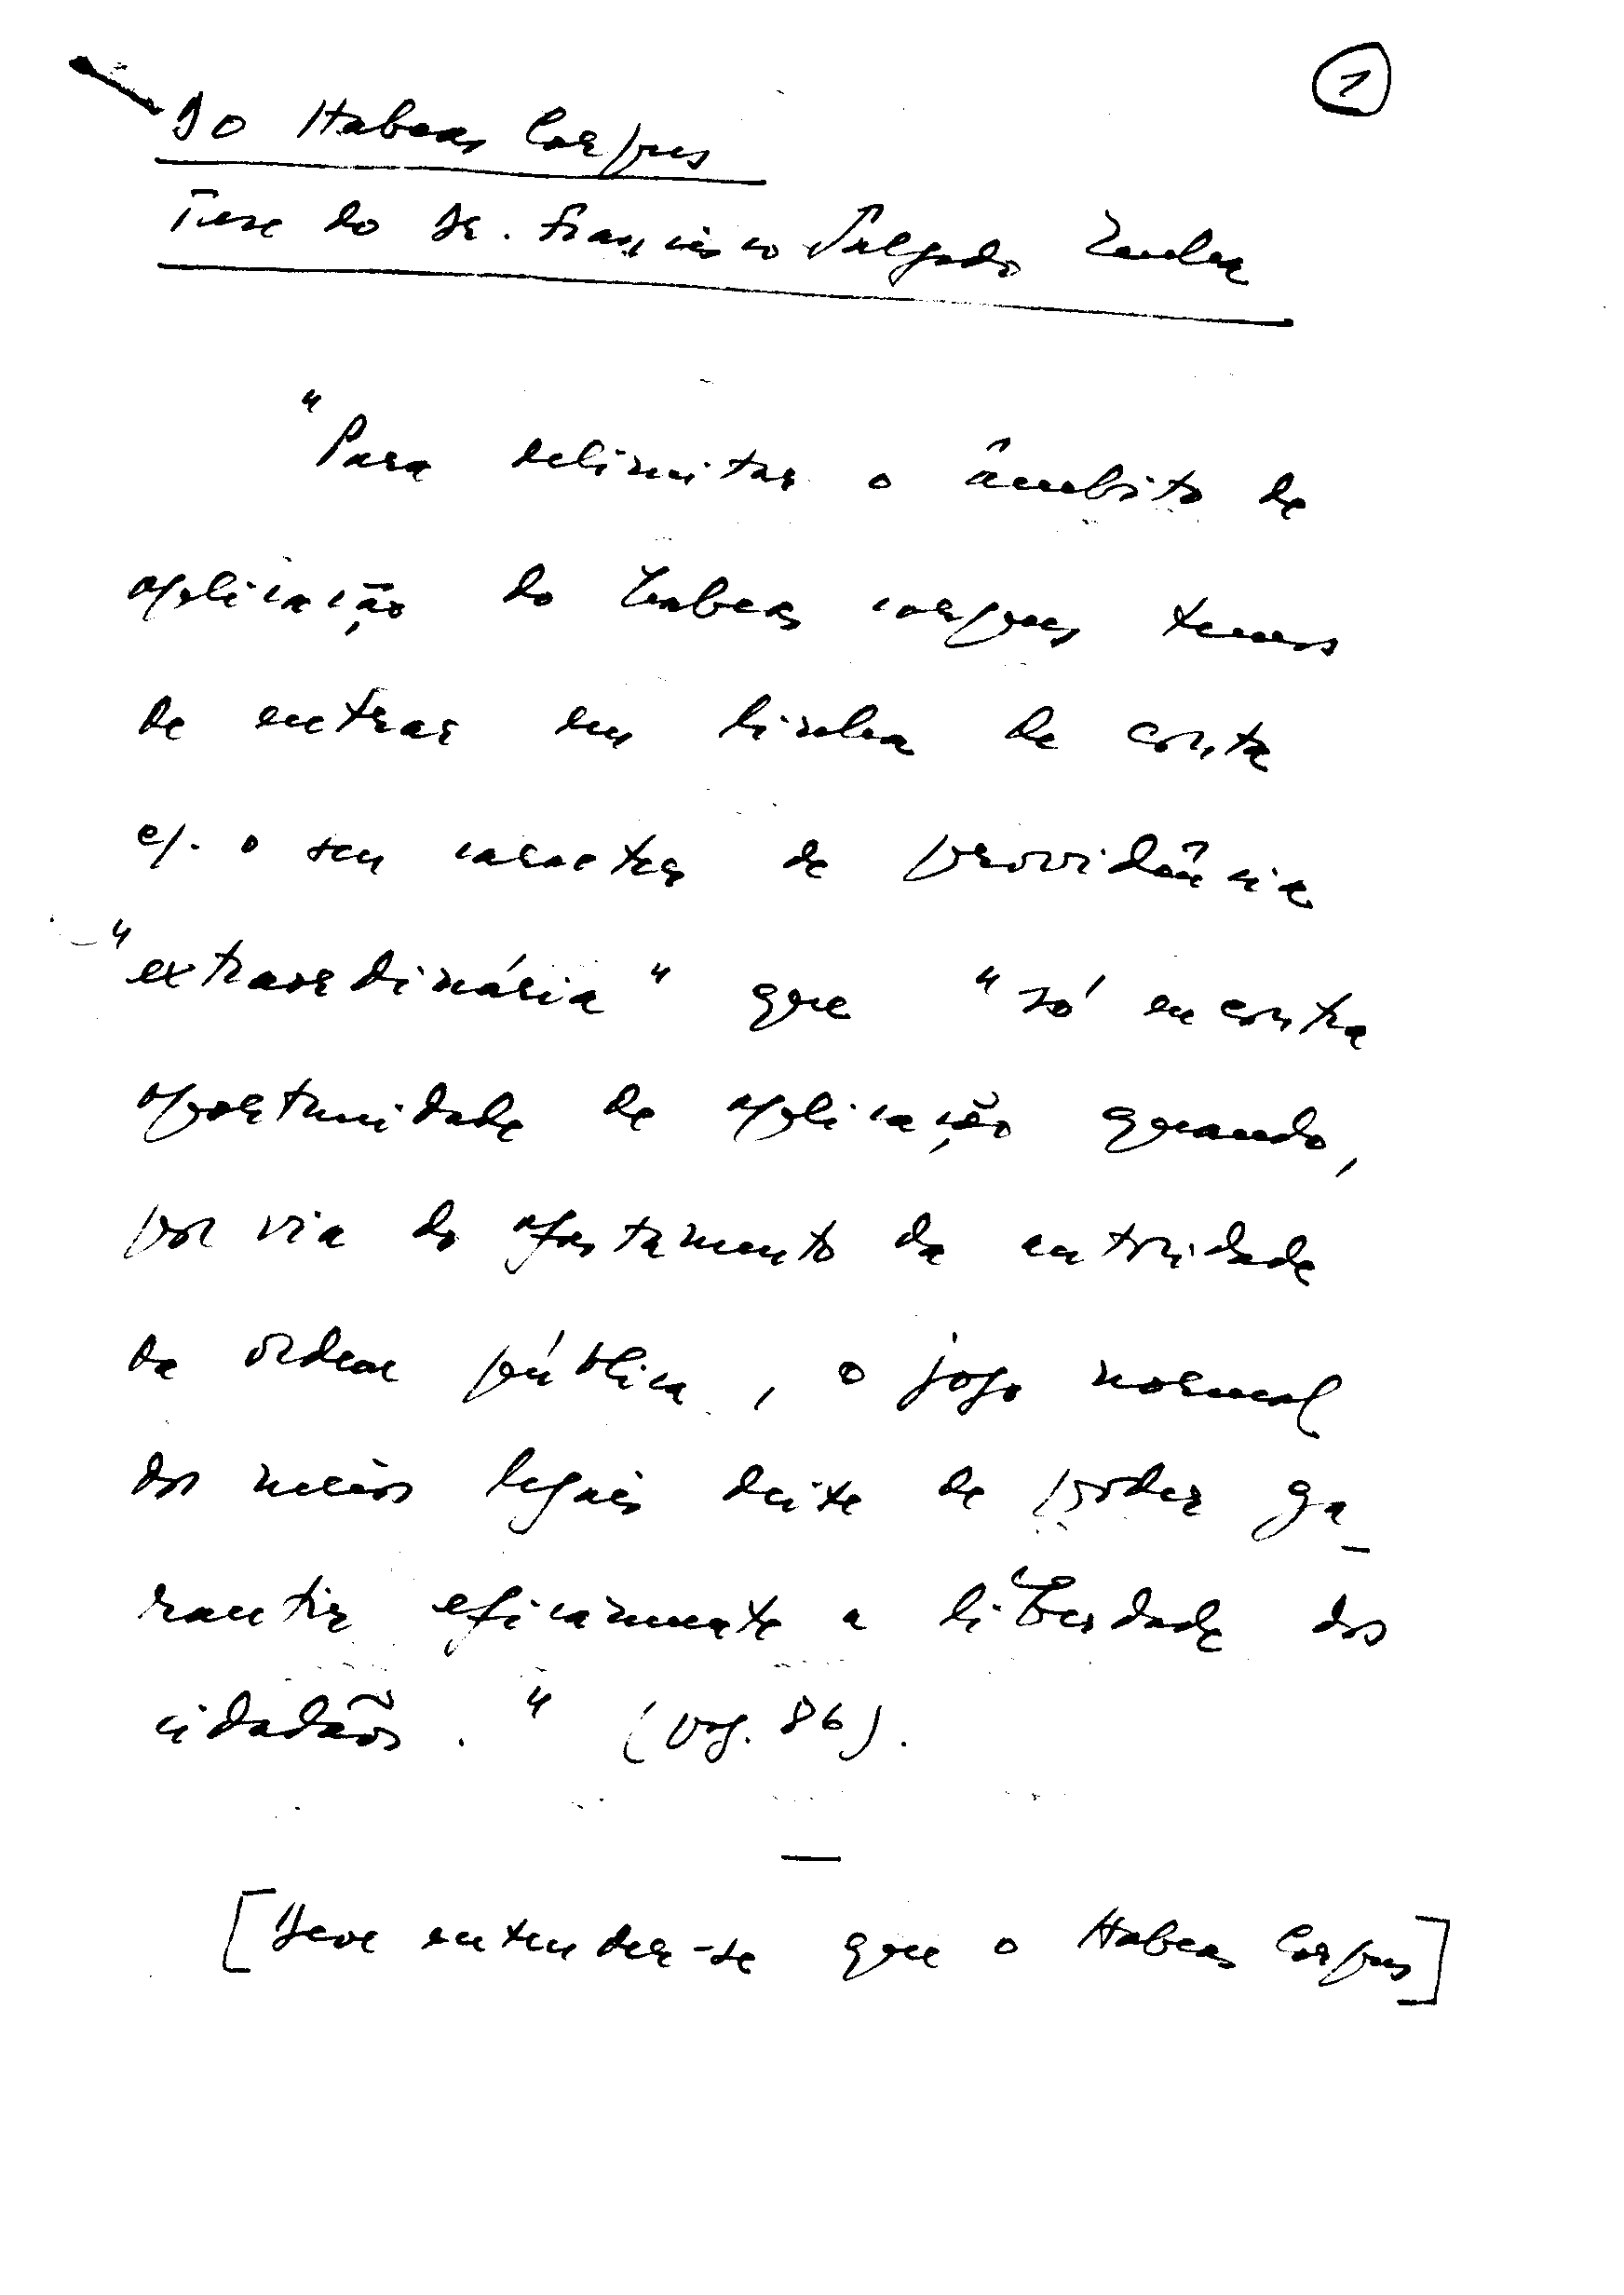 1
Do Habeas Corpus
Tese do Dr. Francisco Salgado Zenha
"Para delimitar o âmbito de
aplicação do habeas corpus temos
de entrar em linha de conta
c/. o seu caracter de providência
"extraordinária" que "só encontra
oportunidade de aplicação quando,
por via do afastamento da autoridade
da ordem pública, o jogo normal
dos meios legais deixe de poder ga-
rantir eficazmente a liberdade dos
cidadãos." (pag. 86).
[Deve entender-se que o Habeas Corpus]